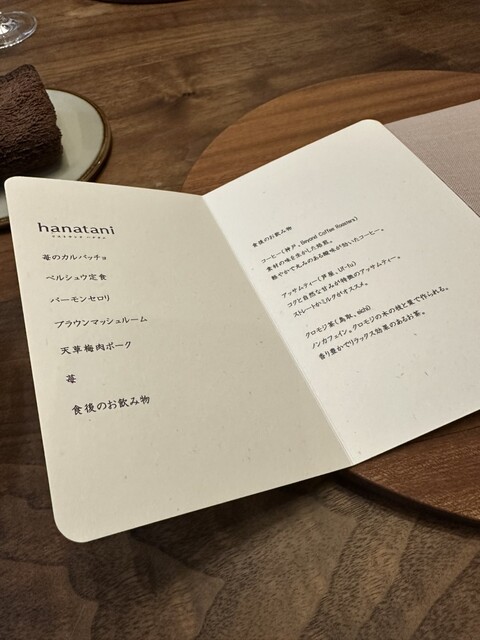 hanatani
苺のカルパッチョ
ペルシュウ定食
バーモンセロリ
ブラウンマッシュルーム
天草梅肉ポーク
苺
食後のお飲み物
食後のお飲み物
コーヒー(神戸、Beyond Coffee Roasters)
素材の味を生かした焙煎。
軽やかで丸みのある酸味が効いたコーヒー。
アッサムティー(芦屋、Uf-fu)
コクと自然な甘みが特徴のアッサムティー。
ストレートかミルクがオススメ。
クロモジ茶(鳥取、eichi)
ノンカフェイン。クロモジの木の枝と葉で作られる。
香り豊かでリラックス効果のあるお茶。